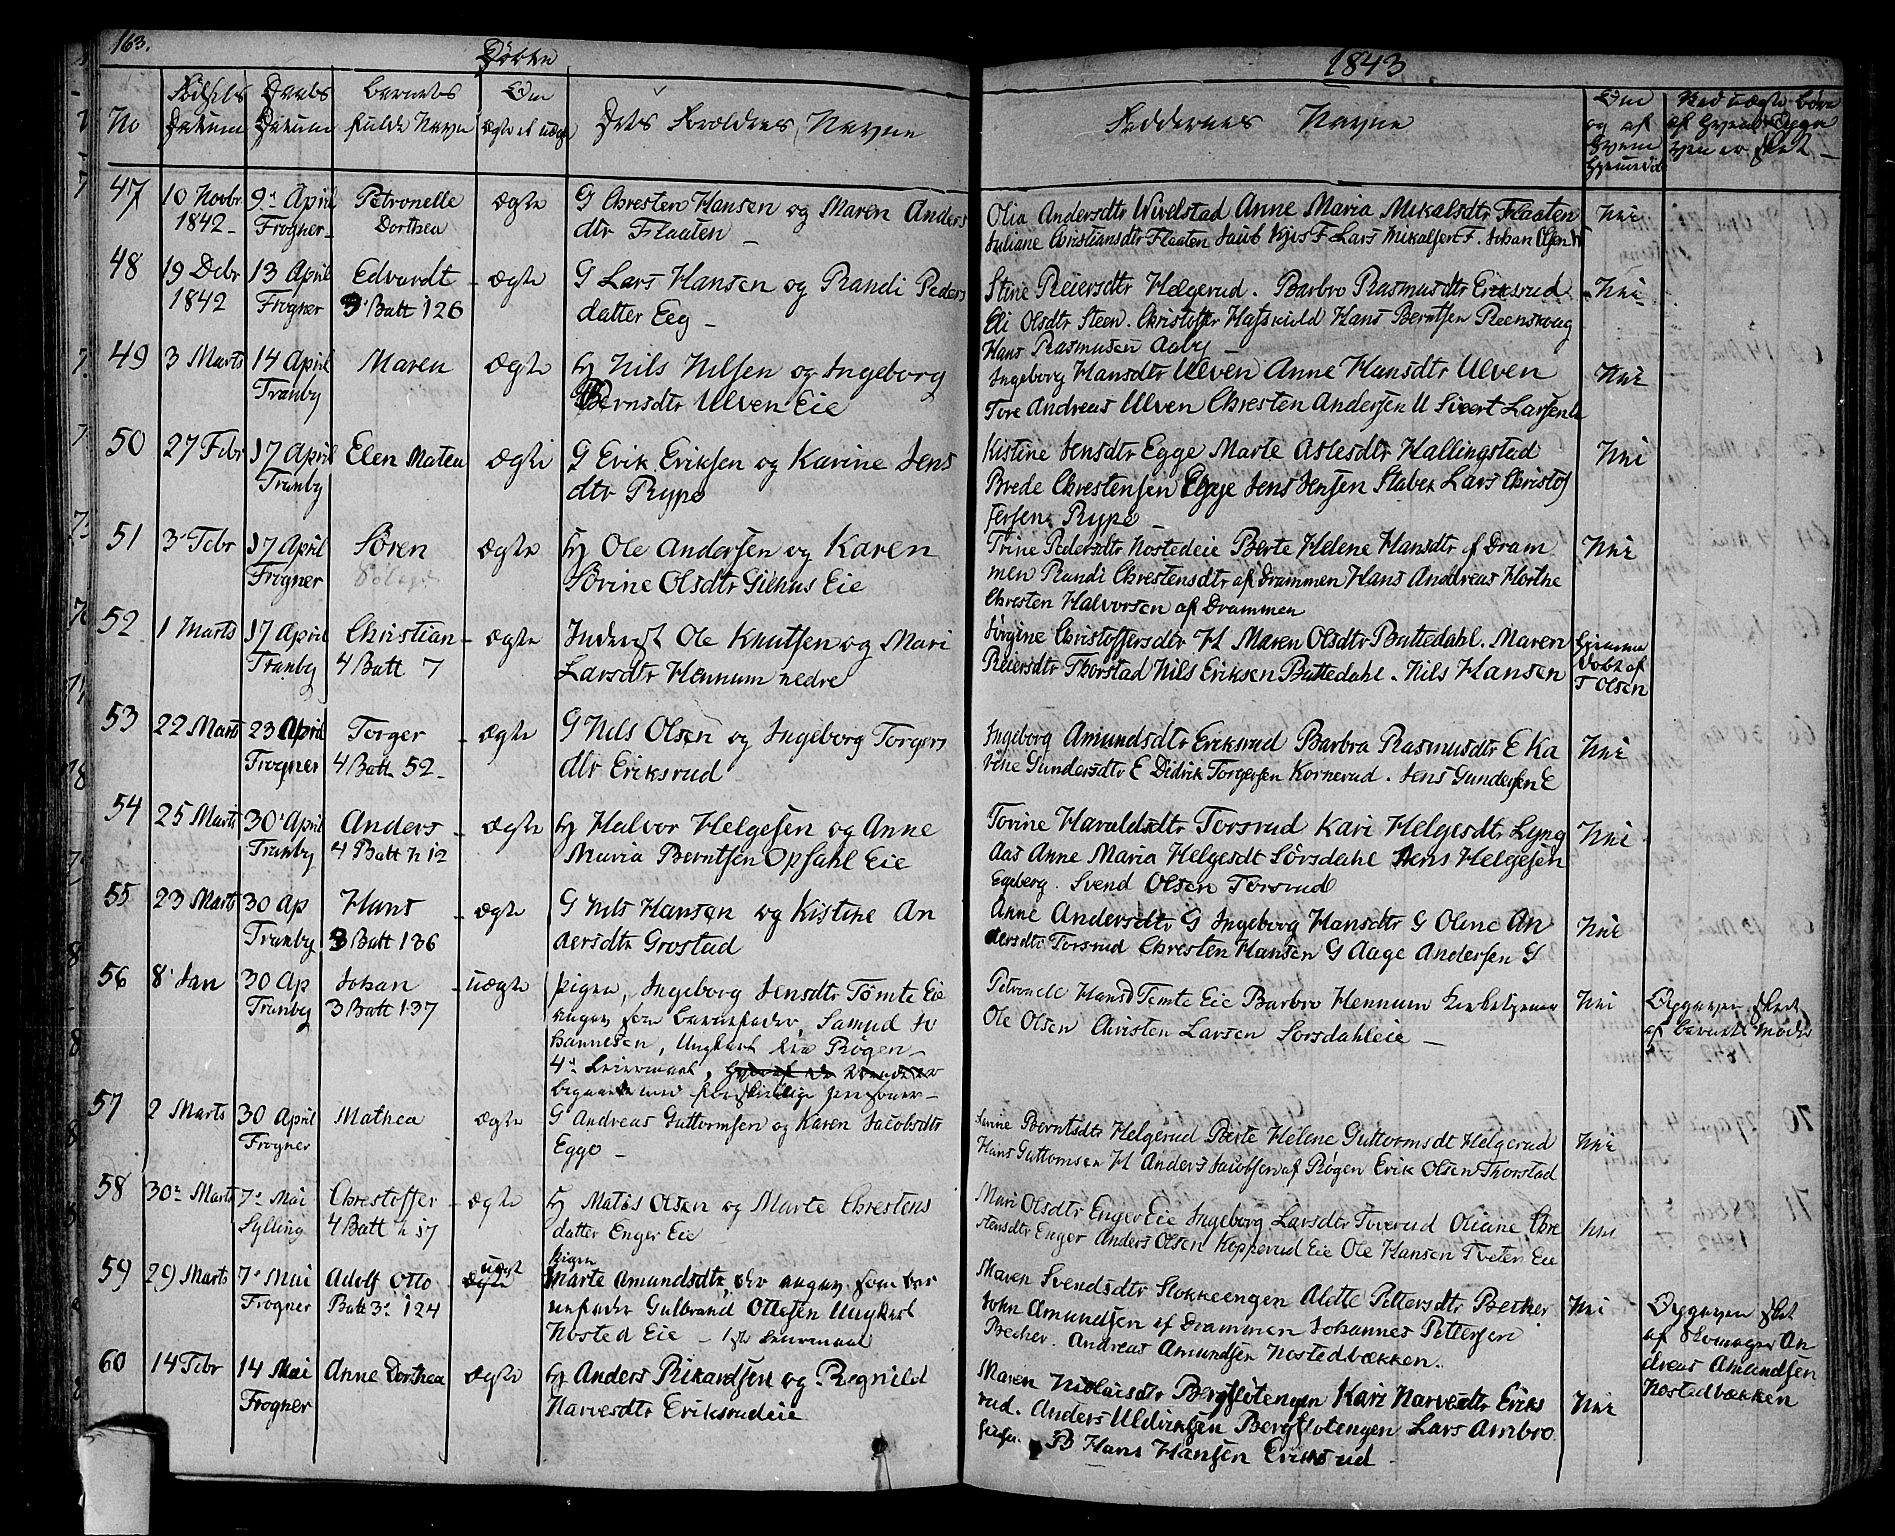 163.
Döbte
1843
No
Födsels Datum
Daabs Datum
Barnets fulde Navn
Om ægte el uægte
Dets Forældres Navne
Faddernes Navne
Om og af Hvem Hjemmedöbt
Ved uægte Börn af Hvem Opgaven er skeet
47 10 Novbr 9 April Petronelle ægte G Chresten Hansen og Maren Anders Olia Andersdtr Wivelstad Anne Maria Mikalsdtr Flaaten Nei
1842 Frogner Dorthea dtr Flaaten Juliane Christiansdtr Flaaten Jacob Kjos F Lars Mikalsen F. Johan Olsen
48 19 Debr 13 April Edvardt ægte G Lars Hansen og Randi Peders Stine Reiersdtr Helgerud. Barbro Rasmusdtr Eriksrud Nei
1842 Frogner 3 Batt 126 datter Eeg Eli Olsdtr Steen. Christoffer Hafskiold Hans Berntsen Reenskoug
Hans Rasmusen Aaby
49 3 Marts 14 April Maren ægte Hj Nils Nilsen og Ingeborg Ingeborg Hansdtr Ulven Anne Hansdtr Ulven Nei
Tranby Bernsdtr Ulven Eie Tore Andreas Ulven Chresten Andersen U Sivert Larsen
50 27 Febr 17 April Elen Matea ægte G Erik Eriksen og Karine Jens Kistine Jensdtr Egge Marte Aslesdtr Hallingstad Nei
Tranby dtr Rype Brede Chrestensen Egge Jens Jensen Staber Lars Christof
fersen Rype
51 3 Febr 17 April Sören ægte Hj Ole Andersen og Karen Trine Pedersdtr Nostedeie Berte Helene Hansdtr af Dram Nei
Frogner Sörine Olsdtr Gilhus Eie men Randi Chrestensdtr af Drammen Hans Andreas Horthe
Chresten Halvorsen af Drammen
52 1 Marts 17 April Christian ægte Inderst Ole Knutsen og Mari Jörgine Christoffersdtr H Maren Olsdtr Buttedahl. Maren Hjemme
Tranby 4 Batt 7 Larsdtr Hennum nedre Reiersdtr Thorstad Nils Eriksen Buttedahl. Nils Hansen döbt af
T Olsen
53 22 Marts 23 April Torger ægte G Nils Olsen og Ingeborg Torgers Ingeborg Amundsdtr Eriksrud Barbra Rasmusdtr E Ka Nei
Frogner 4 Batt 52 dtr Eriksrud rine Gundersdtr E Didrik Torgersen Kornerud. Jens Gundersen E
54 25 Marts 30 April Anders ægte Hj Halvor Helgesen og Anne Torine Haraldsdtr Torsrud Kari Helgesdtr Lyng Nei
Tranby 4 Batt N 12 Maria Berntsen Opsahl Eie aas Anne Maria Helgesdt Sörsdahl Jens Helgesen
Egeberg. Svend Olsen Torsrud
55 23 Marts 30 Ap Hans ægte G Nils Hansen og Kistine An Anne Andersdtr G Ingeborg Hansdtr G Oline An Nei
Tranby 3 Batt 136 dersdtr Grostad dersdtr Torsrud Chresten Hansen G Aage Andersen G
56 8 Jan 30 Ap Johan uægte Pigen, Ingeborg Jensdtr Tömte Eie Petronelle Hansd Temte Eie Barbro Hennum Nei Opgaven skeet
Tranby 3 Batt 137 angav som Barnefader, Samuel Jo Ole Olsen Christen Larsen Sorsdahleie af Barnets Moder
hannesen, Ungkarl fra Rögen
4de Leiermaal,
begaaede med forskjellige personer
57 2 Marts 30 April Mathea ægte G Andreas Guttormsen og Karen Jacobsdtr Berntsdtr Helgerud Berte Helene Guttormsdt Helgerud Nei
Frogner Egge Hans Guttomsen H Anders Jacobsen af Rögen Erik Olsen Thorstad
58 30 Marts 7 Mai Chrestoffer ægte Hj Matis Olsen og Marte Chrestens Mari Olsdtr Enger Eie Ingeborg Larsdtr Toverud Oliane Chre Nei
Sylling 4 Batt N 57 datter Enger Eie stensdtr Enger Anders Olsen Kepperud Eie Ole Hansen Tveter Eie
59 29 Marts 7 Mai Adolf Otto uægt Pigen Marte Amundsdtr, der angav som bar Maren Svendsdtr Stokkeengen Alette Pettersdtr Becher Nei Opgaven skeet
Frogner Batt 3 124 nefader Gulbrand Ottesen Ungkarl John Amundsen af Drammen Johannes Pettersen af Skomager An
Nosted Eie 1ste Leiermaal Becher. Andreas Amundsen Nostedbækken. dreas Amundsen
Nostedbækken
60 14 Febr 14 Mai Anne Dorthea ægte Hj Anders Rikardsen og Regnild Maren Nicolaisdtr Bergflotengen Kari Narvesdtr Eriks Nei
Frogner Narvesdtr Eriksrudeie rud. Anders Uldriksen Bergflotengen Lars Ambro
siusen. B Hans Hansen Eriksrud